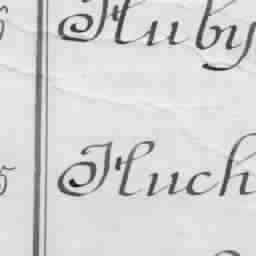 Huby
Huch